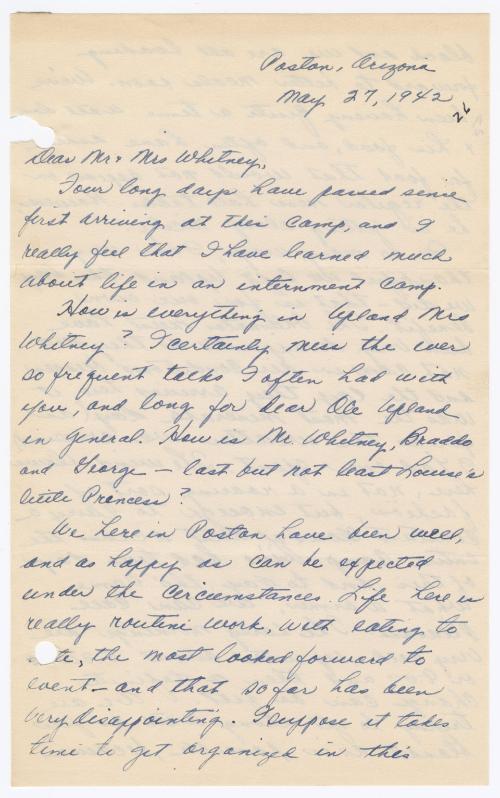 Poston, Arizona
May 27, 1942
26
Dear Mr & Mrs Whitney,
Four long days have passed since
first arriving at this camp, and I
really feel that I have learned much
about life in an internment camp.
How is everything in Upland Mrs
Whitney? I certainly miss the ever
so frequent talks I often had with
you, and long for dear Ole Upland
in general. How is Mr. Whitney, Braddo
and George – last but not least Louise's
little Princess?
We here in Poston have been well,
and as happy as can be expected
under the circumstances. Life here is
really routine work, with eating to
the most looked forward to
event – and that so far has been
very disappointing. I suppose it takes
time to get organized in this